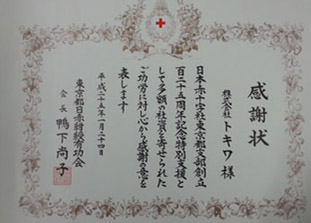 感謝状
株式会社 トキワ 様
日本赤十字社東京都支部創立
百二十五周年記念特別支援と
して多額の社資を寄せられた
ご功労に対し心から感謝の意を
表します
平成二十五年一月二十四日
東京都日赤紺綬有功会
会長 鴨下尚子